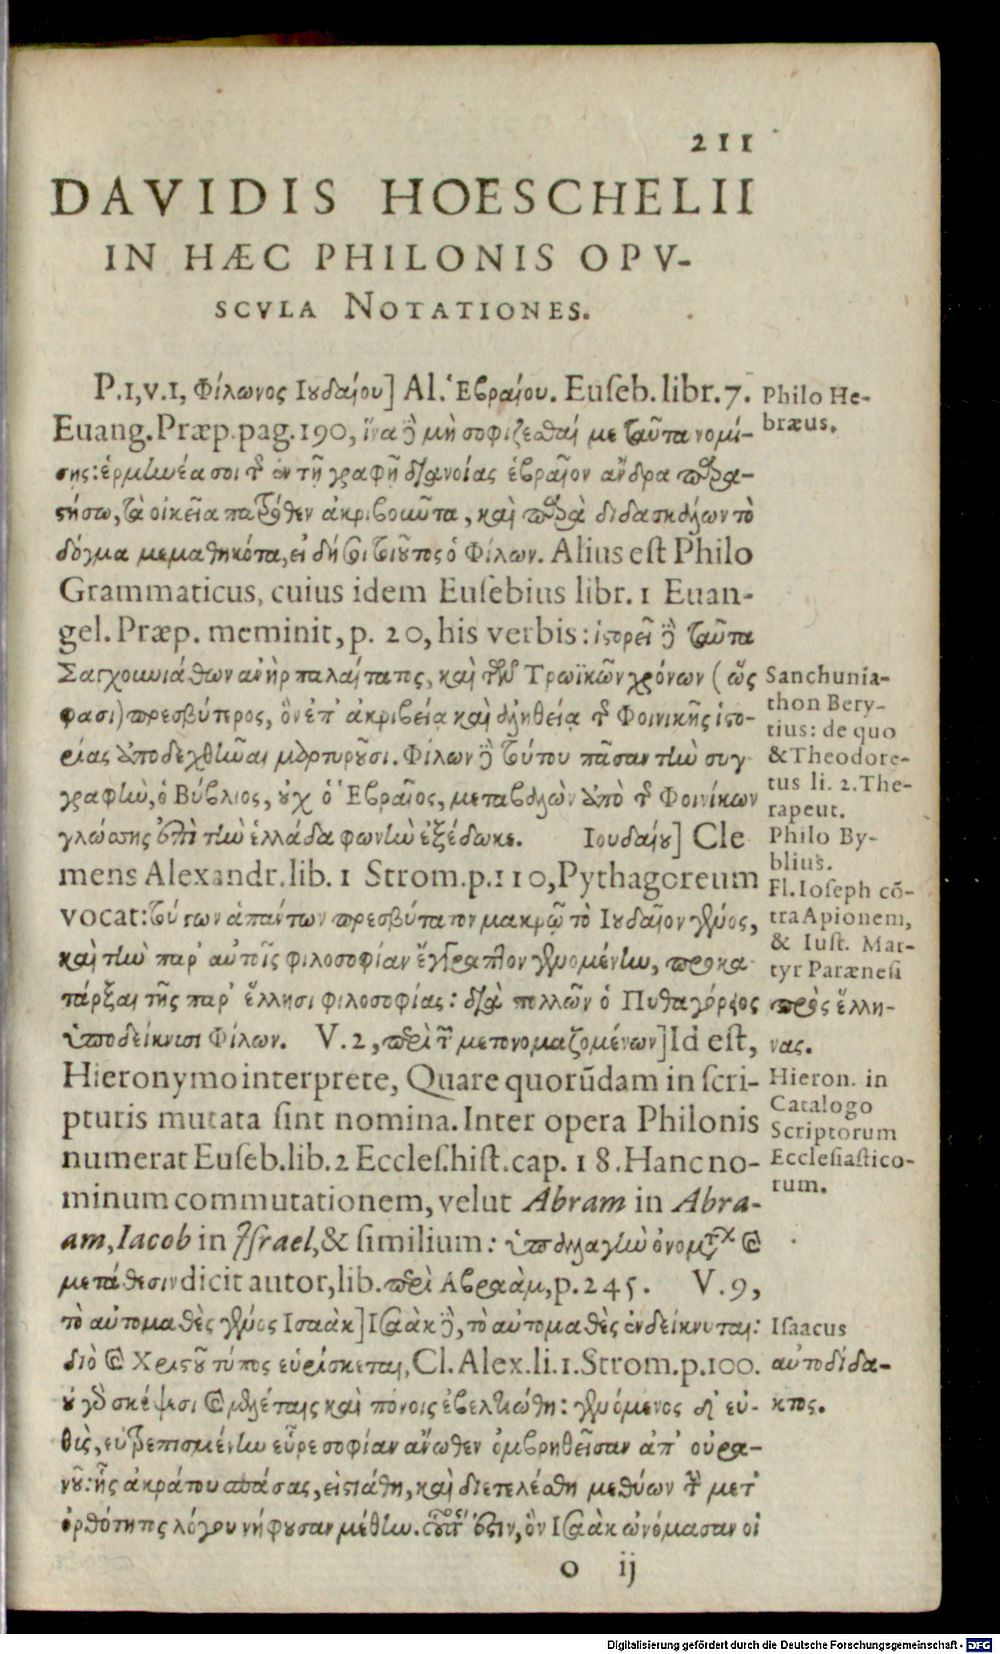 211
DAVIDIS HOESCHELII
IN HÆC PHILONIS OPV-
SCVLA NOTATIONES.
P.1,v.1, Φίλωνος Ιουδαίου] Al. Ἑβραίου. Euseb. libr. 7.
Philo He-
bræus.
Euang. Præp. pag. 190, ἵνα δὲ μὴ σοφίζεσθαί με ταῦτα νομί-
σης: ἑρμηνέα σοι τῆς ἐν τῇ γραφῇ διανοίας ἑβραῖον ἄνδρα παρα-
στήσω, τὰ οἰκεῖα πατρόθεν ἀκριβοῦντα, καὶ παρὰ διδασκάλων τὸ
δόγμα μεμαθηκότα, εἰ δή σοι τοιοῦτος ὁ Φίλων. Alius est Philo
Grammaticus, cuius idem Eusebius libr. 1 Euan-
gel. Præp. meminit, p. 20, his verbis: ἱστορεῖ δὲ ταῦτα
Σαγχουνιάθων ἀνὴρ παλαίτατος, καὶ τῶν Τρωϊκῶν χρόνων (ὥς
φασι) πρεσβύτερος, ὃν ἐπ' ἀκριβείᾳ καὶ ἀληθείᾳ τῆς Φοινικῆς ἱστο-
ρίας ἀποδεχθῆναι μαρτυροῦσι. Φίλων δὲ τούτου πᾶσαν τὴν συγ-
γραφὴν, ὁ Βύβλιος, οὐχ ὁ Ἑβραῖος, μεταβαλὼν ἀπὸ τῆς Φοινίκων
γλώσσης ἐπὶ τὴν ἑλλάδα φωνὴν ἐξέδωκε. Ιουδαίου] Cle
Sanchunia-
thon Bery-
tius: de quo
& Theodore-
tus li. 2. The-
rapeut.
Philo By-
blius.
mens Alexandr. lib. 1 Strom. p. 110, Pythagoreum
vocat: τούτων ἁπάντων πρεσβύτατον μακρῷ τὸ Ιουδαῖον γένος,
καὶ τὴν παρ' αὐτοῖς φιλοσοφίαν ἔγγραπτον γενομένην, προκα-
τάρξαι τῆς παρ' ἕλλησι φιλοσοφίας: διὰ πολλῶν ὁ Πυθαγόρειος
ὑποδείκνυσι Φίλων. V. 2, περὶ τῶν μετονομαζομένων] Id est,
Fl. Ioseph cō-
tra Apionem,
& Iust. Mar-
tyr Parænesi
πρὸς ἕλλη-
νας.
Hieronymo interprete, Quare quorūdam in scri-
pturis mutata sint nomina. Inter opera Philonis
numerat Euseb. lib. 2 Eccles. hist. cap. 18. Hanc no-
minum commutationem, velut Abram in Abra-
am, Iacob in Israel, & similium: ὑπαλλαγὴν ὀνομάτων καὶ
Hieron. in
Catalogo
Scriptorum
Ecclesiastico-
rum.
μετάθεσιν dicit autor, lib. περὶ Αβραὰμ, p. 245. V. 9,
τὸ αὐτομαθὲς γένος Ισαὰκ] Ισαὰκ δὲ, τὸ αὐτομαθὲς ἐνδείκνυται:
διὸ καὶ Χριστοῦ τύπος εὑρίσκεται, Cl. Alex. li. 1. Strom. p. 100.
οὐ γὰρ σκέψεσι καὶ μελέταις καὶ πόνοις ἐβελτιώθη: γενόμενος δ' εὐ-
Isaacus
αὐτοδίδα-
κτος.
θὺς, εὐτρεπισμένην εὗρε σοφίαν ἄνωθεν ὀμβρηθεῖσαν ἀπ' οὐρα-
νοῦ: ἧς ἀκράτου σπάσας, εἱστιάθη, καὶ διετελέσθη μεθύων τὴν μετ'
ὀρθότητος λόγου νήφουσαν μέθην. οὗτός ἐστιν, ὃν Ισαὰκ ὠνόμασαν οἱ
o ij
Digitalisierung gefördert durch die Deutsche Forschungsgemeinschaft - DFG